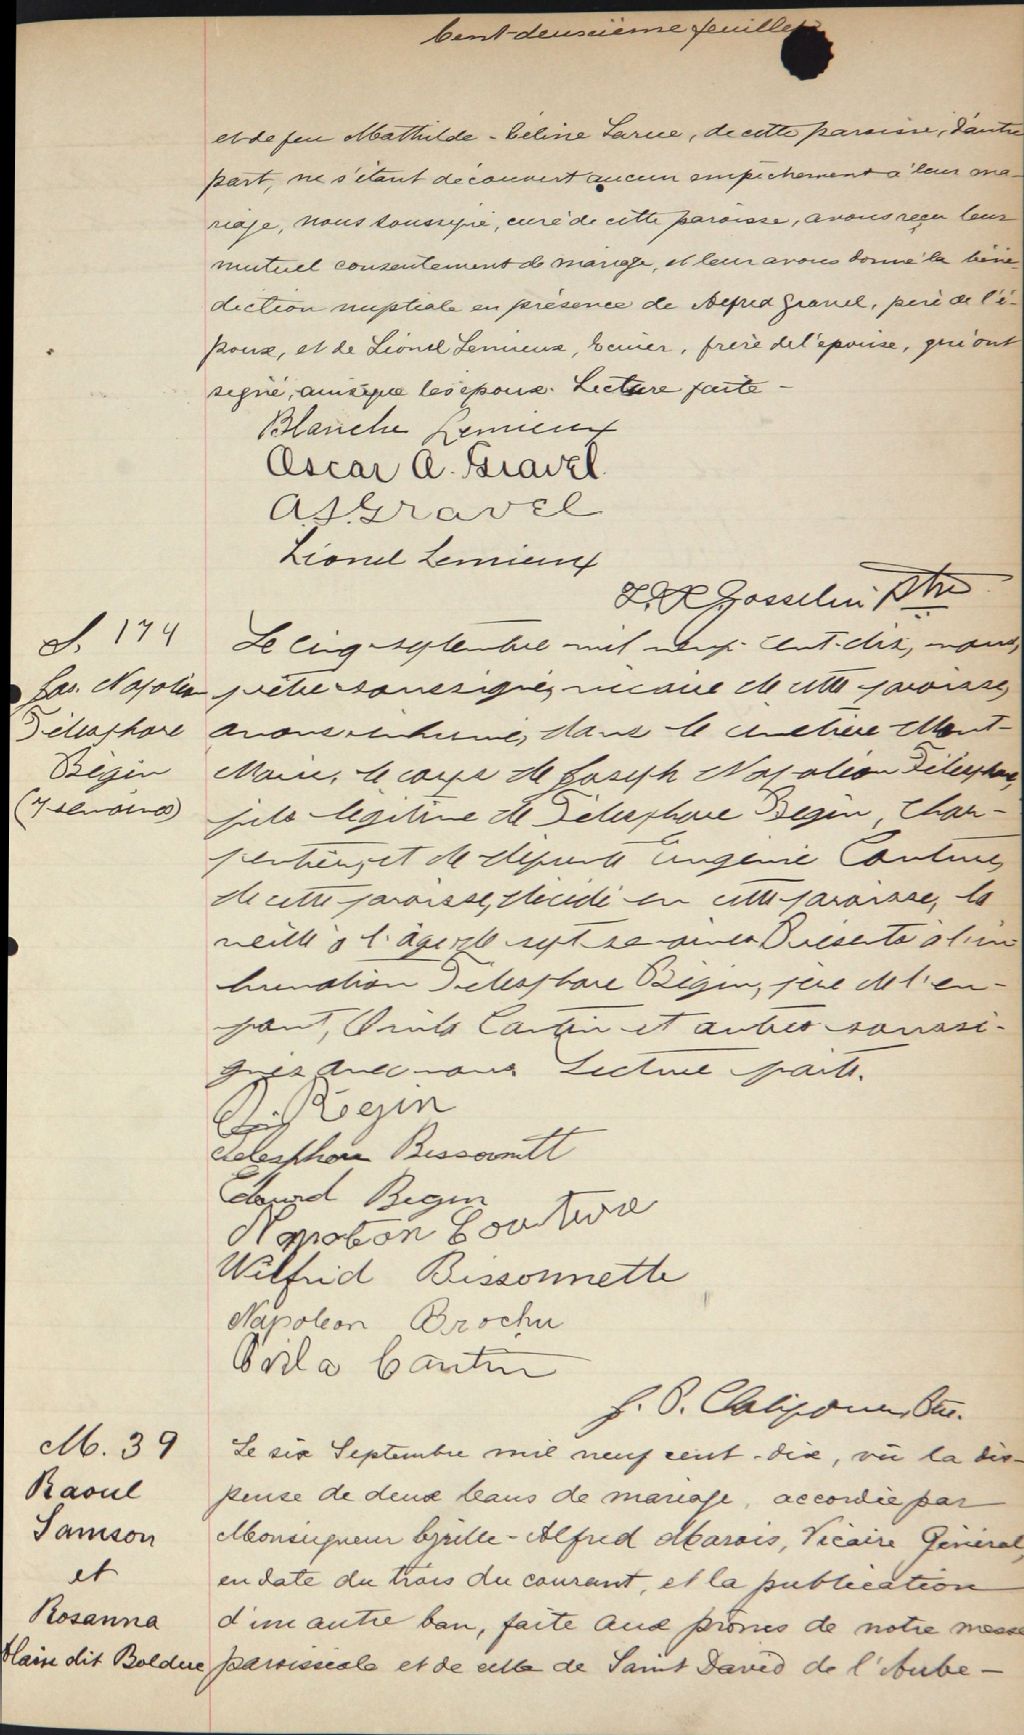 Cent-deuxième feuillet
et de feu Mathilde-Céline Larue, de cette paroisse, d'autre
part, ne s'étant découvert aucun empêchement à leur ma-
riage, nous soussigné, curé de cette paroisse, avons reçu leur
mutuel consentement de mariage, et leur avons donné la béné-
diction nuptiale en présence de Alfred Gravel, père de l'é-
poux, et de Lionel Lemieux, Ecuier, frère de l'épouse, qui ont
signé, ainsique les époux. Lecture faite -
Blanche Lemieux
Oscar A. Gravel.
A.J. Gravel
Lionel Lemieux
Gosselin Ptre
S. 174
Jos. Napoléon
Télesphore
Bégin
(7 semaines)
Le cinq septembre mil neuf-cent-dix, nous,
prêtre soussigné, vicaire de cette paroisse,
avons inhumé, dans le cimetière Mont-
Marie, le corps de Joseph Napoléon Télesphore,
fils légitime de Télesphore Bégin, char-
pentier, et de défunte Eugénie Couture,
de cette paroisse, décédé en cette paroisse, la
veille à l'âge de sept semaines. Présents à l'in-
humation Télesphore Bégin, père de l'en-
fant, Ovila Cantin et autres soussi-
gnés avec nous. Lecture faite.
Bégin
Télesphore Bissonnett
Edward Begin
Napoleon Couture
Wilfrid Bissonnette
Napoleon Brochu
Ovila Cantin
J. P. Ptre.
M. 39
Raoul
Samson
et
Rosanna
Blaise dit Bolduc
Le six Septembre mil neuf cent-dix, vu la dis-
pense de deux bans de mariage, accordée par
Monseigneur Cyrille-Alfred Marois, Vicaire Général,
en date du trois du courant, et la publication
d'un autre ban, faite aux prônes de notre messe
paroissiale et de celle de Saint David de l'Aube-